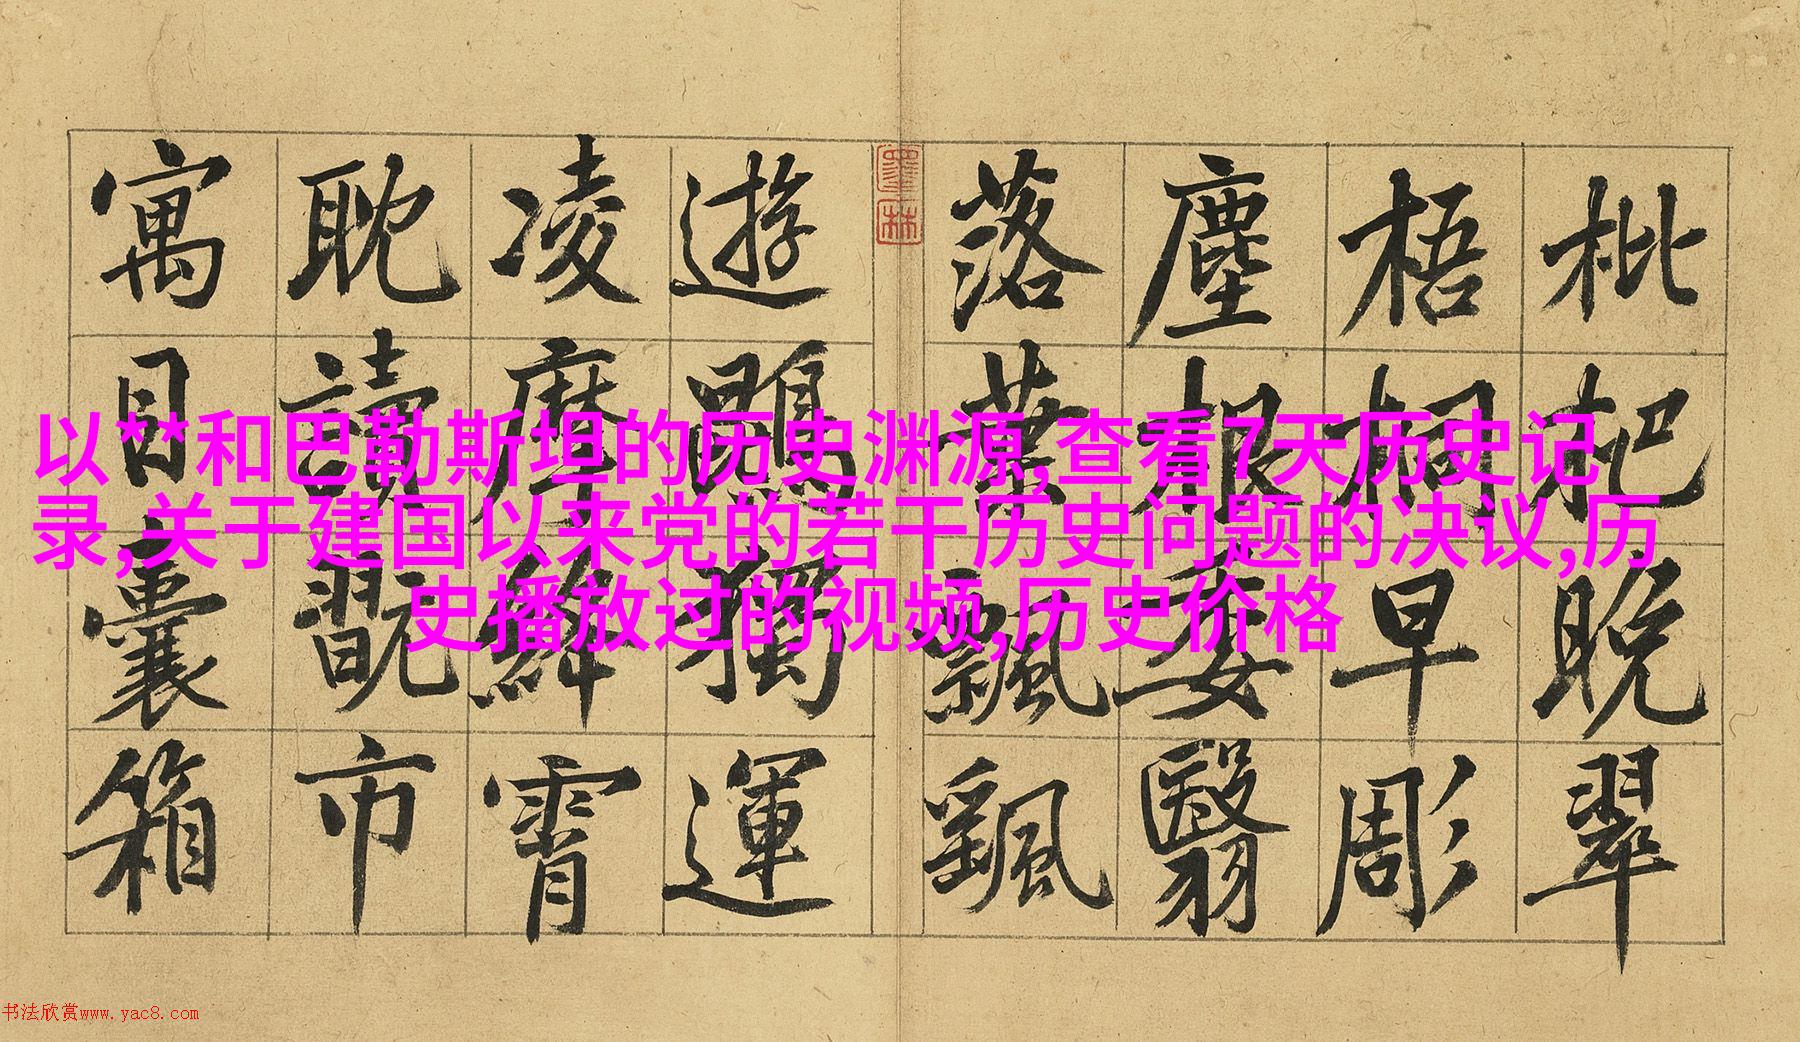 枇杷晚翠
梧桐早彫
塵根委翳
落葉飄颻
墨林
遊鵾獨運
凌摩絳霄
耽讀翫市
寓目囊箱
以**和巴勒斯坦的历史渊源,查看7天历史记
录,关于建国以来党的若干历史问题的决议,历
史播放过的视频,历史价格
书法欣赏www.yac8.com